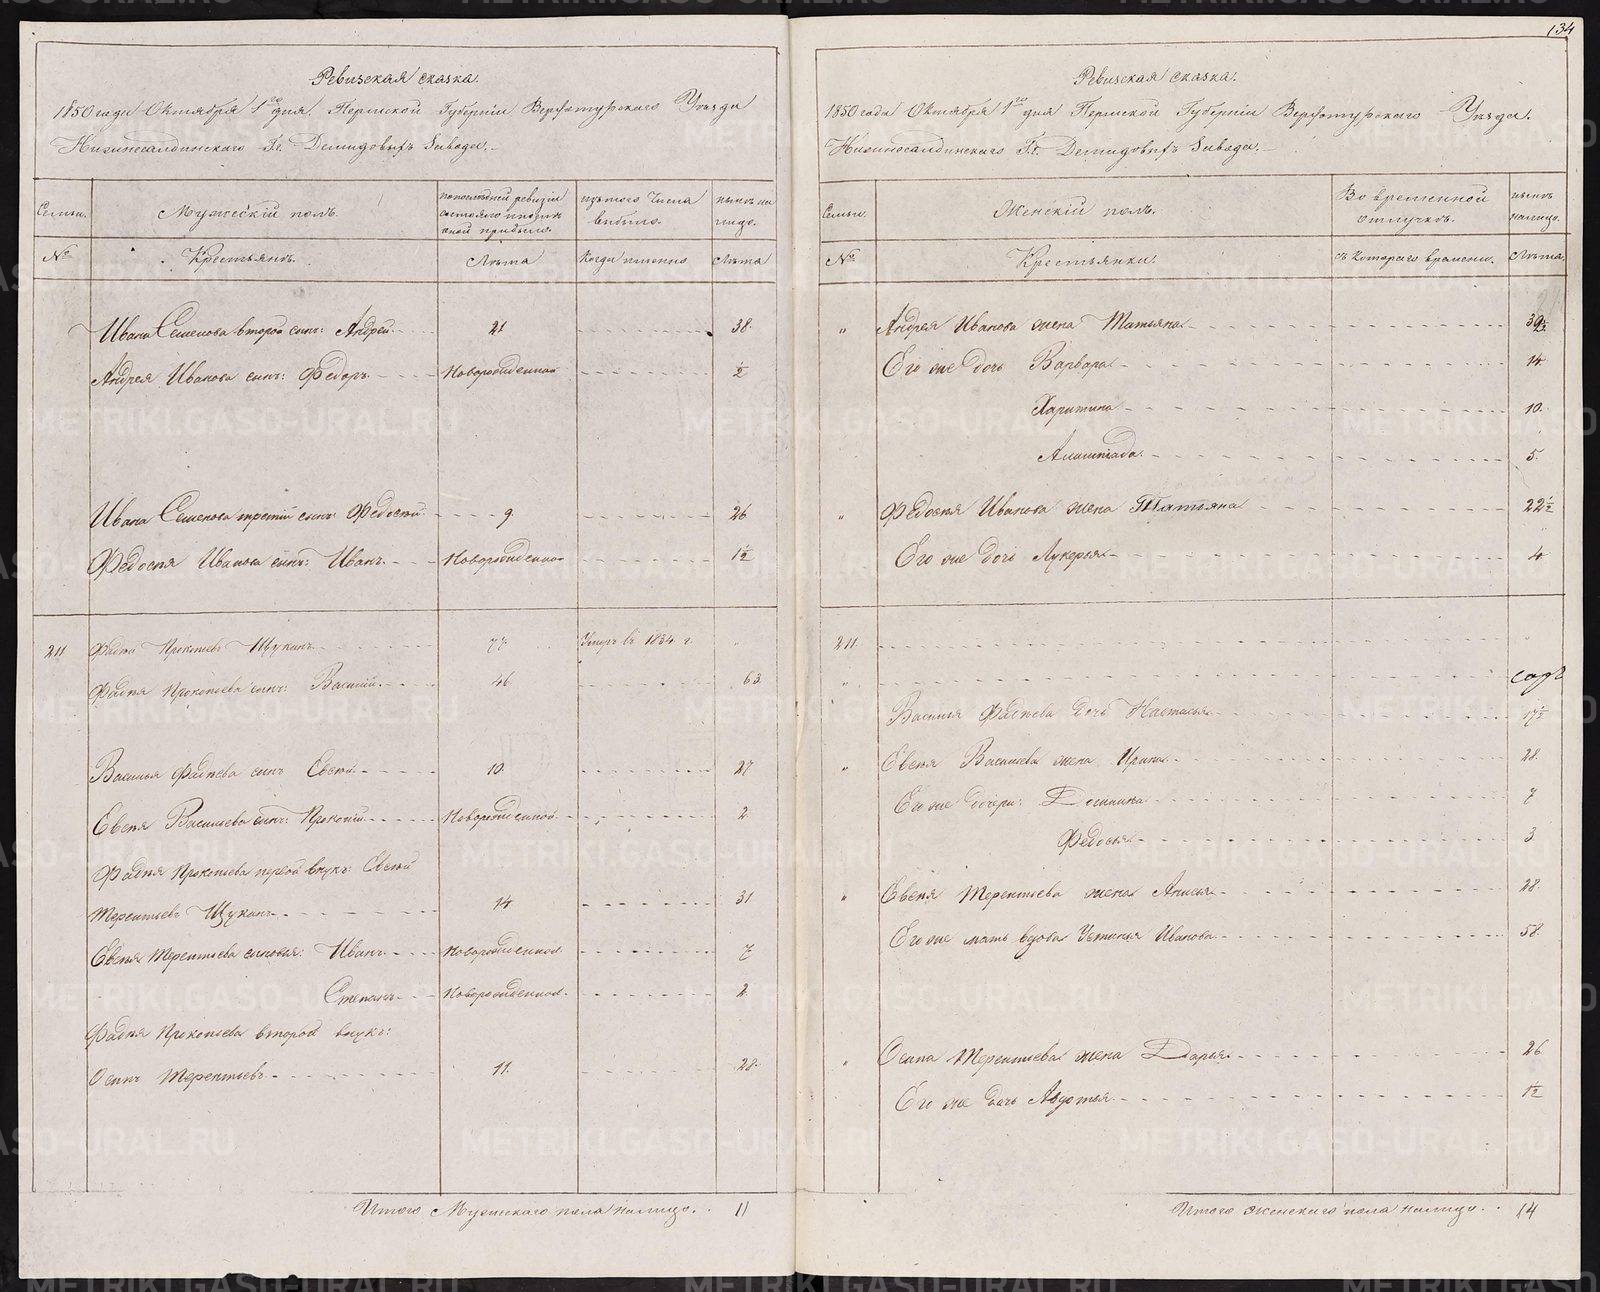 134
Ревизская сказка.
1850 года Октября 1го дня. Пермской Губернии Верхотурскаго Уѣзда
Нижнесалдинскаго Гг. Демидовыхъ Завода.
Семьи.
Мужескій полъ.
по послѣдней ревизіи состояло и послѣ оной прибыло.
изъ того числа выбыло.
нынѣ на лицо.
№
Крестьянъ.
Лѣта
Когда именно
Лѣта
Ивана Семенова второй сынъ: Андрей 21 38.
Андрея Иванова сынъ: Федоръ Новорожденной ½
Ивана Семенова третій сынъ: Федосѣй 9 26
Федосѣя Иванова сынъ: Иванъ Новорожденной 1½
211 Фадѣй Прокопьевъ Щукинъ 77 Умеръ въ 1834 г. "
Фадѣя Прокопьева сынъ: Василій 46 63
Василья Фадѣева сынъ Евсѣй 10. 27
Евсѣя Васильева сынъ: Прокопій Новорожденной 2
Фадѣя Прокопьева первой внукъ: Евсѣй
Терентьевъ Щукинъ 14 31
Евсѣя Терентьева сыновья: Иванъ Новорожденной 7
Степанъ Новорожденной 2.
Фадѣя Прокопьева второй внукъ:
Осипъ Терентьевъ 11. 28.
Итого Мужескаго пола на лицо. 11
Ревизская сказка.
1850 года Октября 1го дня Пермской Губерніи Верхотурскаго Уѣзда.
Нижнесалдинскаго Гг. Демидовыхъ Завода.
Семьи.
Женскій полъ.
Во временной отлучкѣ.
нынѣ на лицо.
№
Крестьянки.
съ котораго времени.
Лѣта.
" Андрея Иванова жена Татьяна
Его же дочь Варвара 14.
Харитина 10.
5.
" Федосѣя Иванова жена Татьяна 22½
Его же дочь Лукерья 4.
211. "
"
Василья Фадѣева дочь Настасья 17½
" Евсѣя Васильева жена Ирина 28.
Его же дочери: 7
Федосья 3
" Евсѣя Терентьева жена Анисья 28.
Его же мать вдова Устинья Иванова 58.
" Осипа Терентьева жена Дарья 26
Его же дочь Авдотья 1½
Итого женскаго пола на лицо. 14
METRIKI.GASO-URAL.RU